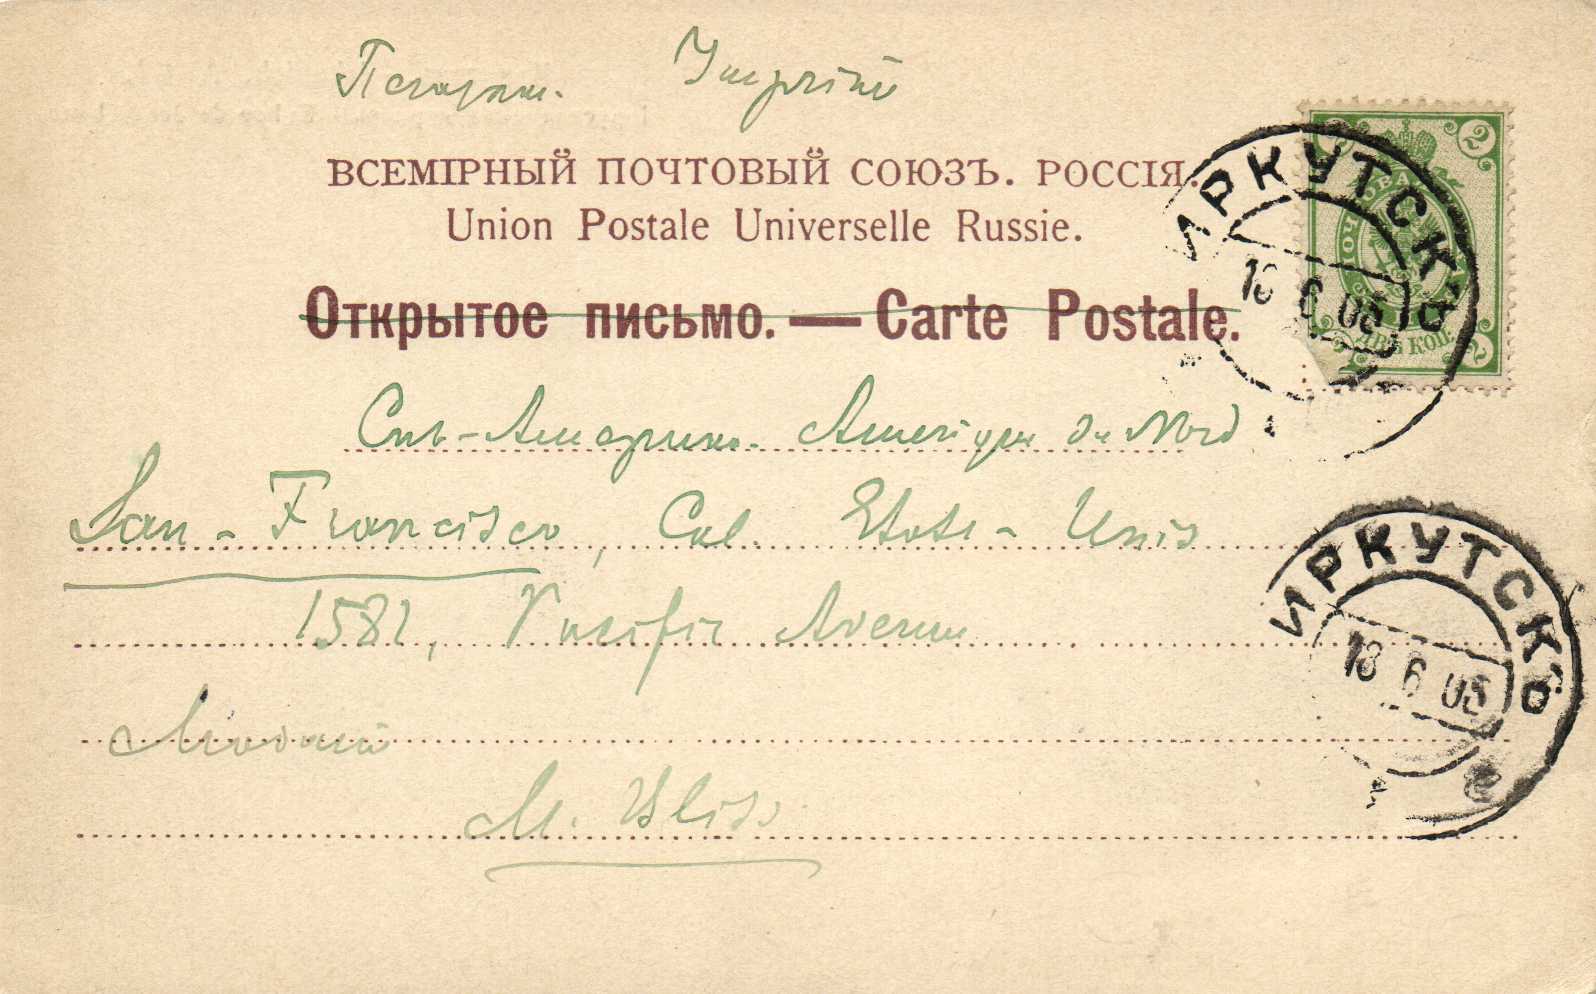 Печатн. Imprimé
ВСЕМІРНЫЙ ПОЧТОВЫЙ СОЮЗЪ. РОССІЯ.
Union Postale Universelle Russie.
Открытое письмо. — Carte Postale.
ИРКУТСКЪ
18 6 05
ПОЧТОВАЯ МАРКА
2
ДВѢ КОП.
Сѣв-Америка. Amerique du Nord
San-Francisco, Cal. Etats-Unis
1581, Pacific Avenue
ИРКУТСКЪ
18 6 05
M. Bliss